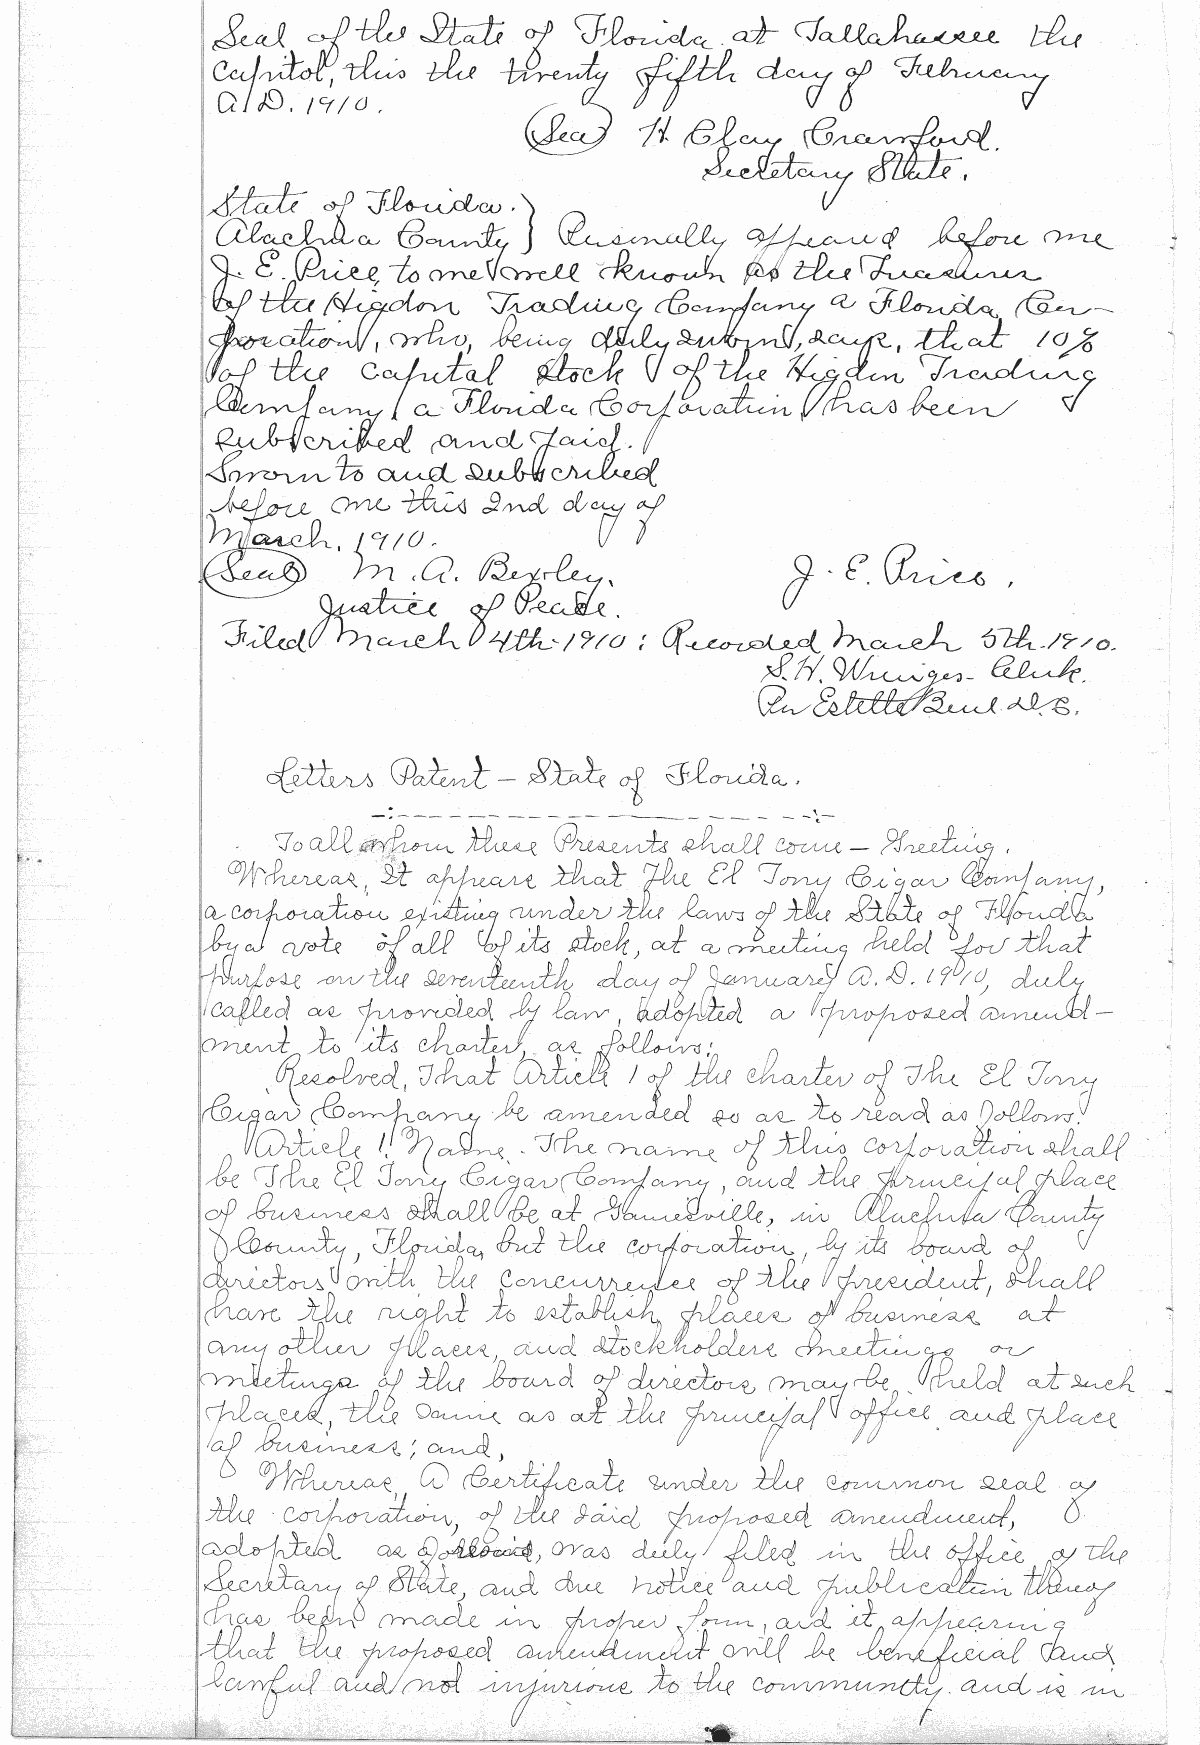 Seal of the State of Florida at Tallahassee the
Capitol, this the twenty fifth day of February
A.D. 1910.
(Seal) H. Clay Crawford.
Secretary State.
State of Florida. }
Alachua County } Personally appeared before me
J. E. Price, to me well known as the Treasurer
of the Higdon Trading Company a Florida Cor-
poration, who, being duly sworn, says, that 10%
of the Capital Stock of the Higdon Trading
Company, a Florida Corporation, has been
subscribed and paid.
Sworn to and subscribed
before me this 2nd day of
March, 1910.
(Seal) M. A. Bexley, J. E. Price.
Justice of Peace.
Filed March 4th-1910: Recorded March 5th-1910.
S. H. Wienges- Clerk.
Per Estelle D.C.
Letters Patent - State of Florida.
To all whom these Presents shall come - Greeting.
Whereas, It appears that The El Tony Cigar Company,
a corporation existing under the laws of the State of Florida
by a vote of all of its stock, at a meeting held for that
purpose on the seventeenth day of January A.D. 1910, duly
called as provided by law, adopted a proposed amend-
ment to its charter, as follows:
Resolved, That Article 1 of the charter of The El Tony
Cigar Company be amended so as to read as follows:
Article 1. Name. The name of this corporation shall
be The El Tony Cigar Company, and the principal place
of business shall be at Gainesville, in Alachua County
County, Florida, but the corporation, by its board of
directors with the concurrence of the president, shall
have the right to establish places of business at
any other places, and stockholders meetings or
meetings of the board of directors may be held at such
places, the same as at the principal office and place
of business; and,
Whereas, A Certificate under the common seal of
the corporation, of the said proposed amendment,
adopted as , was duly filed in the office of the
Secretary of State, and due notice and publication thereof
has been made in proper form, and it appearing
that the proposed amendment will be beneficial and
lawful and not injurious to the community and is in